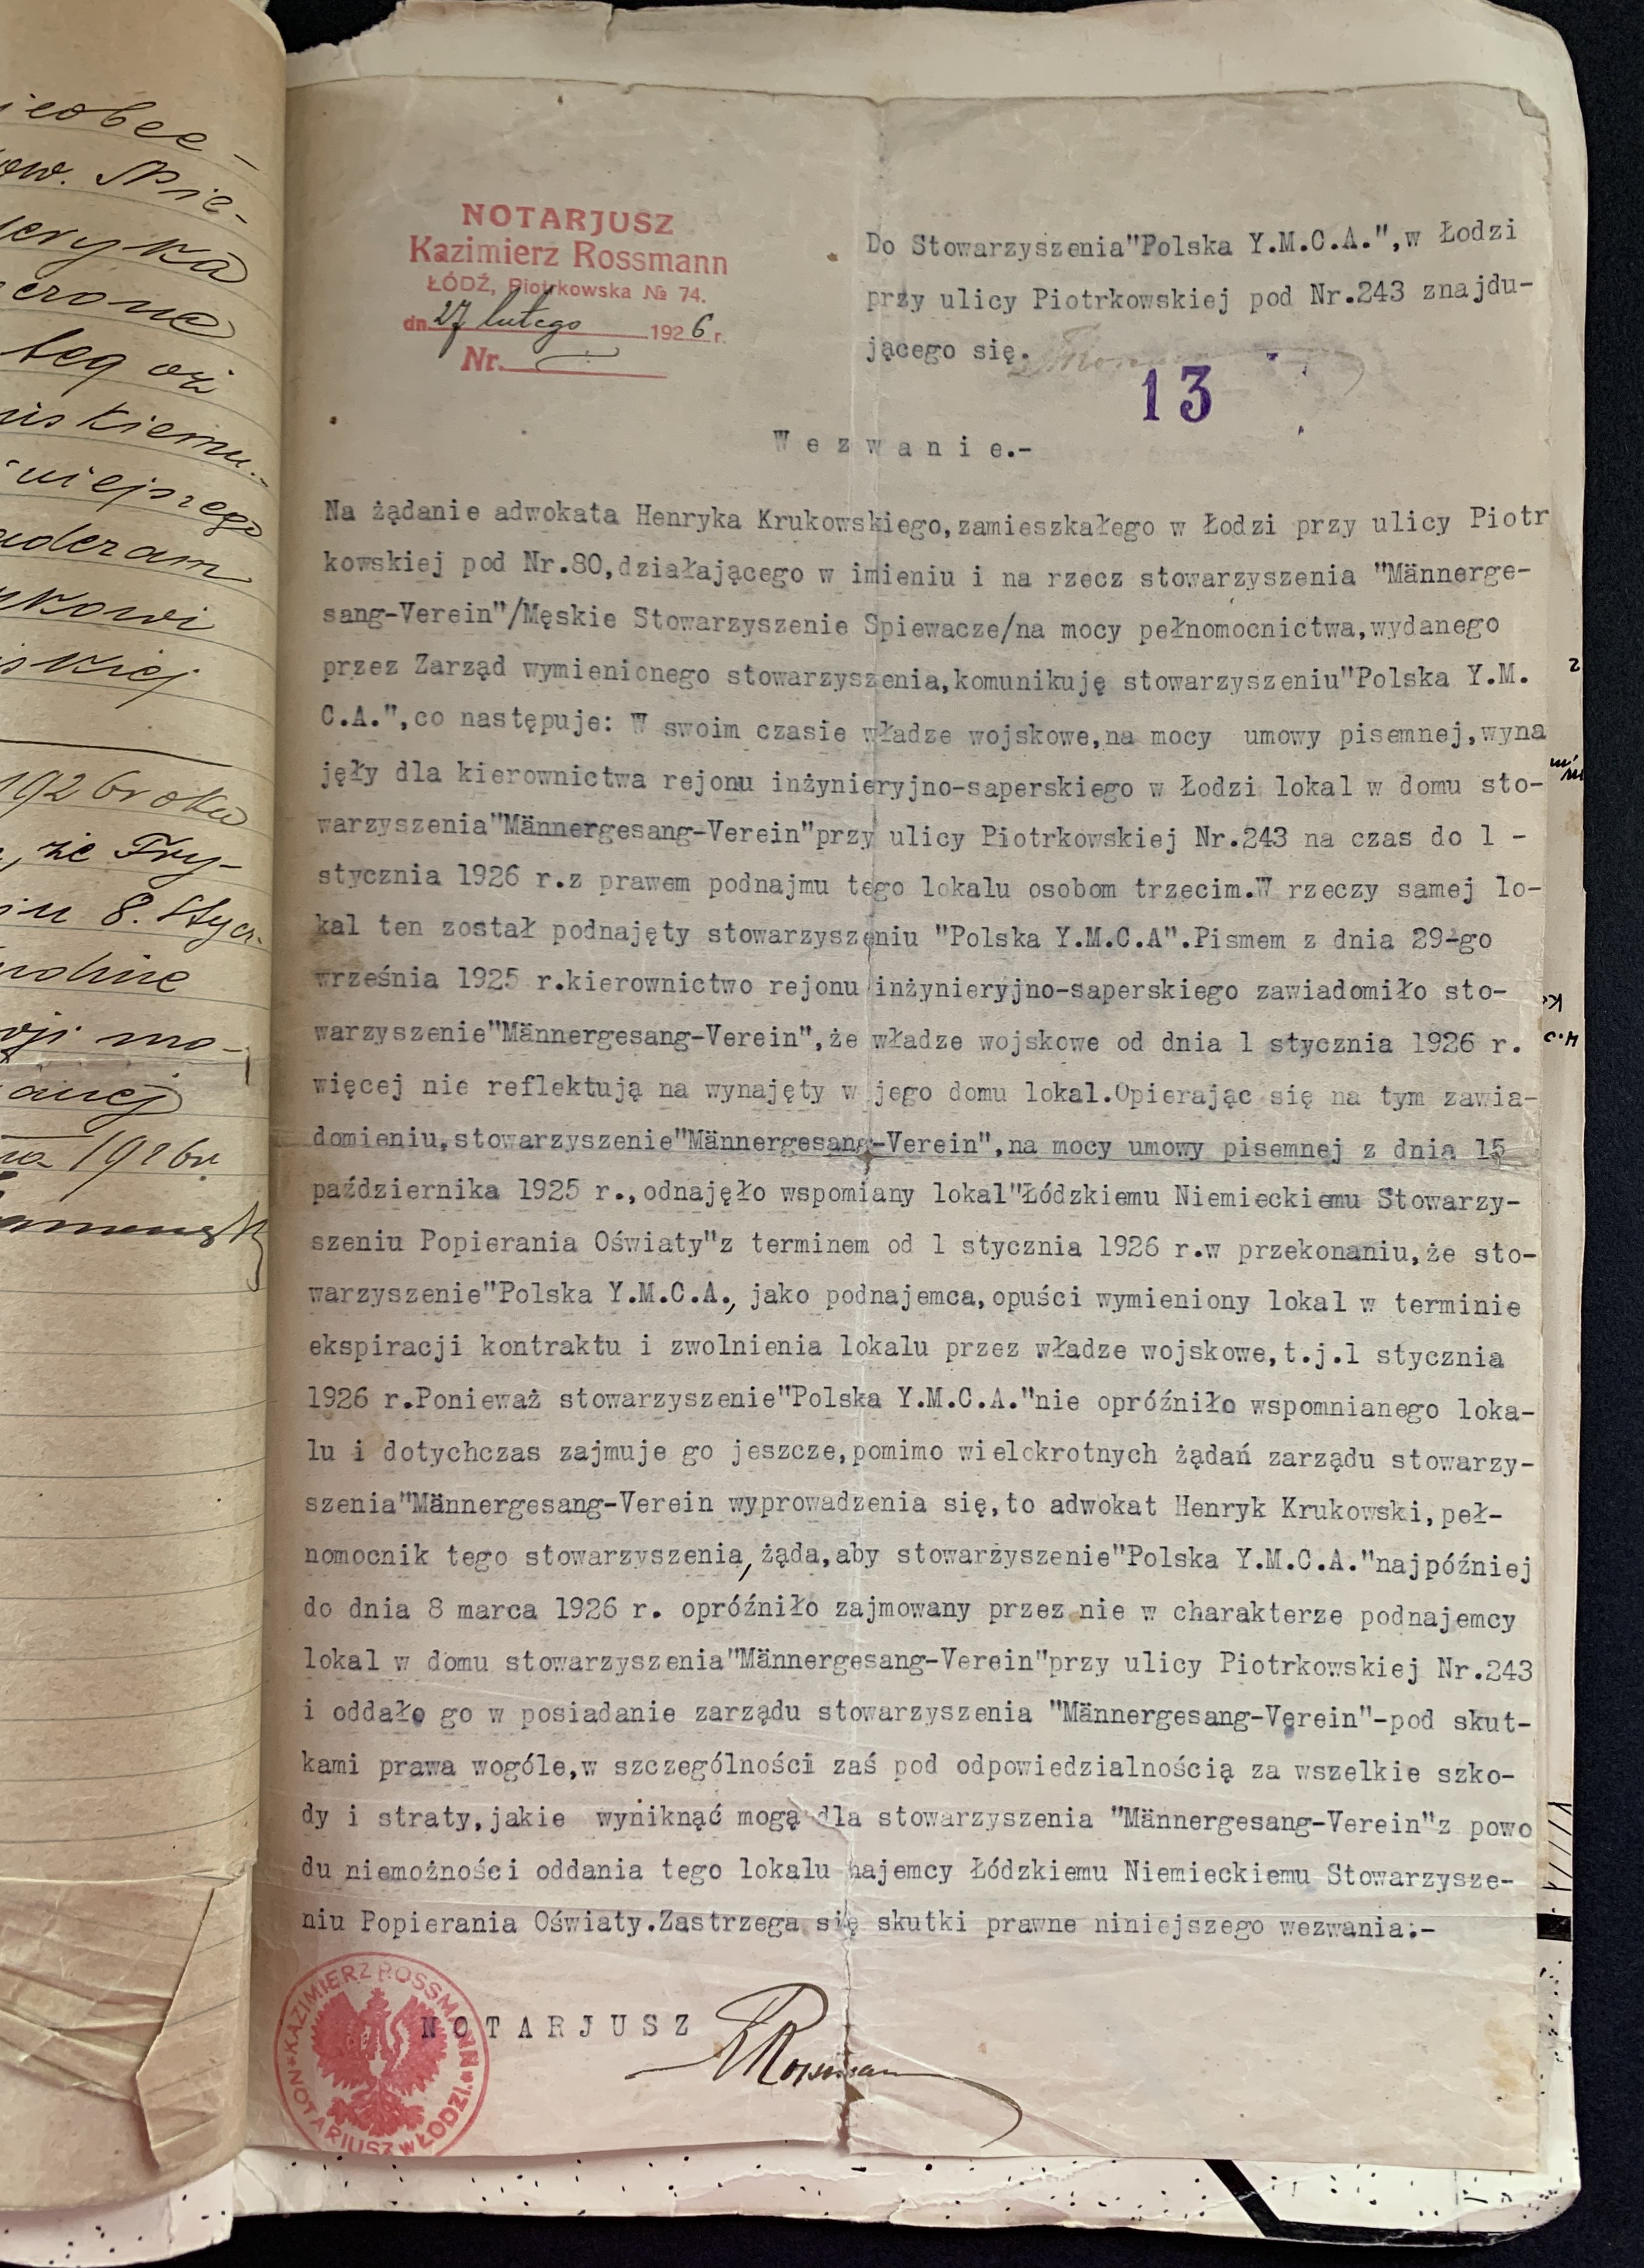 jeobec-
ow. Spie-
eryka
crone
teg
uskiemu.-
niejszego
aderam
ukowi
skiej
1926 roku
, że Fry-
iu 8. Stycz-
mo-
anej
1926r.
NOTARJUSZ
Kazimierz Rossmann
ŁÓDŹ, Piotrkowska № 74.
dn. 27 lutego 1926 r.
Nr.
Do Stowarzyszenia"Polska Y.M.C.A.",w Łodzi
przy ulicy Piotrkowskiej pod Nr.243 znajdu-
jącego się.
13
Wezwanie.-
Na żądanie adwokata Henryka Krukowskiego,zamieszkałego w Łodzi przy ulicy Piotr
kowskiej pod Nr.80,działającego w imieniu i na rzecz stowarzyszenia "Männerge-
sang-Verein"/Męskie Stowarzyszenie Spiewacze/na mocy pełnomocnictwa,wydanego
przez Zarząd wymienionego stowarzyszenia,komunikuję stowarzyszeniu"Polska Y.M.
C.A.",co następuje: W swoim czasie władze wojskowe,na mocy umowy pisemnej,wyna
jęły dla kierownictwa rejonu inżynieryjno-saperskiego w Łodzi lokal w domu sto-
warzyszenia"Männergesang-Verein"przy ulicy Piotrkowskiej Nr.243 na czas do 1 -
stycznia 1926 r.z prawem podnajmu tego lokalu osobom trzecim.W rzeczy samej lo-
kal ten został podnajęty stowarzyszeniu "Polska Y.M.C.A".Pismem z dnia 29-go
września 1925 r.kierownictwo rejonu inżynieryjno-saperskiego zawiadomiło sto-
warzyszenie"Männergesang-Verein",że władze wojskowe od dnia 1 stycznia 1926 r.
więcej nie reflektują na wynajęty w jego domu lokal.Opierając się na tym zawia-
domieniu,stowarzyszenie"Männergesang-Verein",na mocy umowy pisemnej z dnia 15
października 1925 r.,odnajęło wspomiany lokal"Łódzkiemu Niemieckiemu Stowarzy-
szeniu Popierania Oświaty"z terminem od 1 stycznia 1926 r.w przekonaniu,że sto-
warzyszenie"Polska Y.M.C.A., jako podnajemca,opuści wymieniony lokal w terminie
ekspiracji kontraktu i zwolnienia lokalu przez władze wojskowe,t.j.1 stycznia
1926 r.Ponieważ stowarzyszenie"Polska Y.M.C.A."nie opróźniło wspomnianego loka-
lu i dotychczas zajmuje go jeszcze,pomimo wielokrotnych żądań zarządu stowarzy-
szenia"Männergesang-Verein wyprowadzenia się,to adwokat Henryk Krukowski,peł-
nomocnik tego stowarzyszenia, żąda,aby stowarzyszenie"Polska Y.M.C.A."najpóźniej
do dnia 8 marca 1926 r. opróźniło zajmowany przez nie w charakterze podnajemcy
lokal w domu stowarzyszenia"Männergesang-Verein"przy ulicy Piotrkowskiej Nr.243
i oddało go w posiadanie zarządu stowarzyszenia "Männergesang-Verein"-pod skut-
kami prawa wogóle,w szczególności zaś pod odpowiedzialnością za wszelkie szko-
dy i straty,jakie wyniknąć mogą dla stowarzyszenia "Männergesang-Verein"z powo
du niemożności oddania tego lokalu najemcy Łódzkiemu Niemieckiemu Stowarzysze-
niu Popierania Oświaty.Zastrzega się skutki prawne niniejszego wezwania.-
NOTARJUSZ
KRossman
KAZIMIERZ ROSSMANN
NOTARIUSZ w ŁODZI